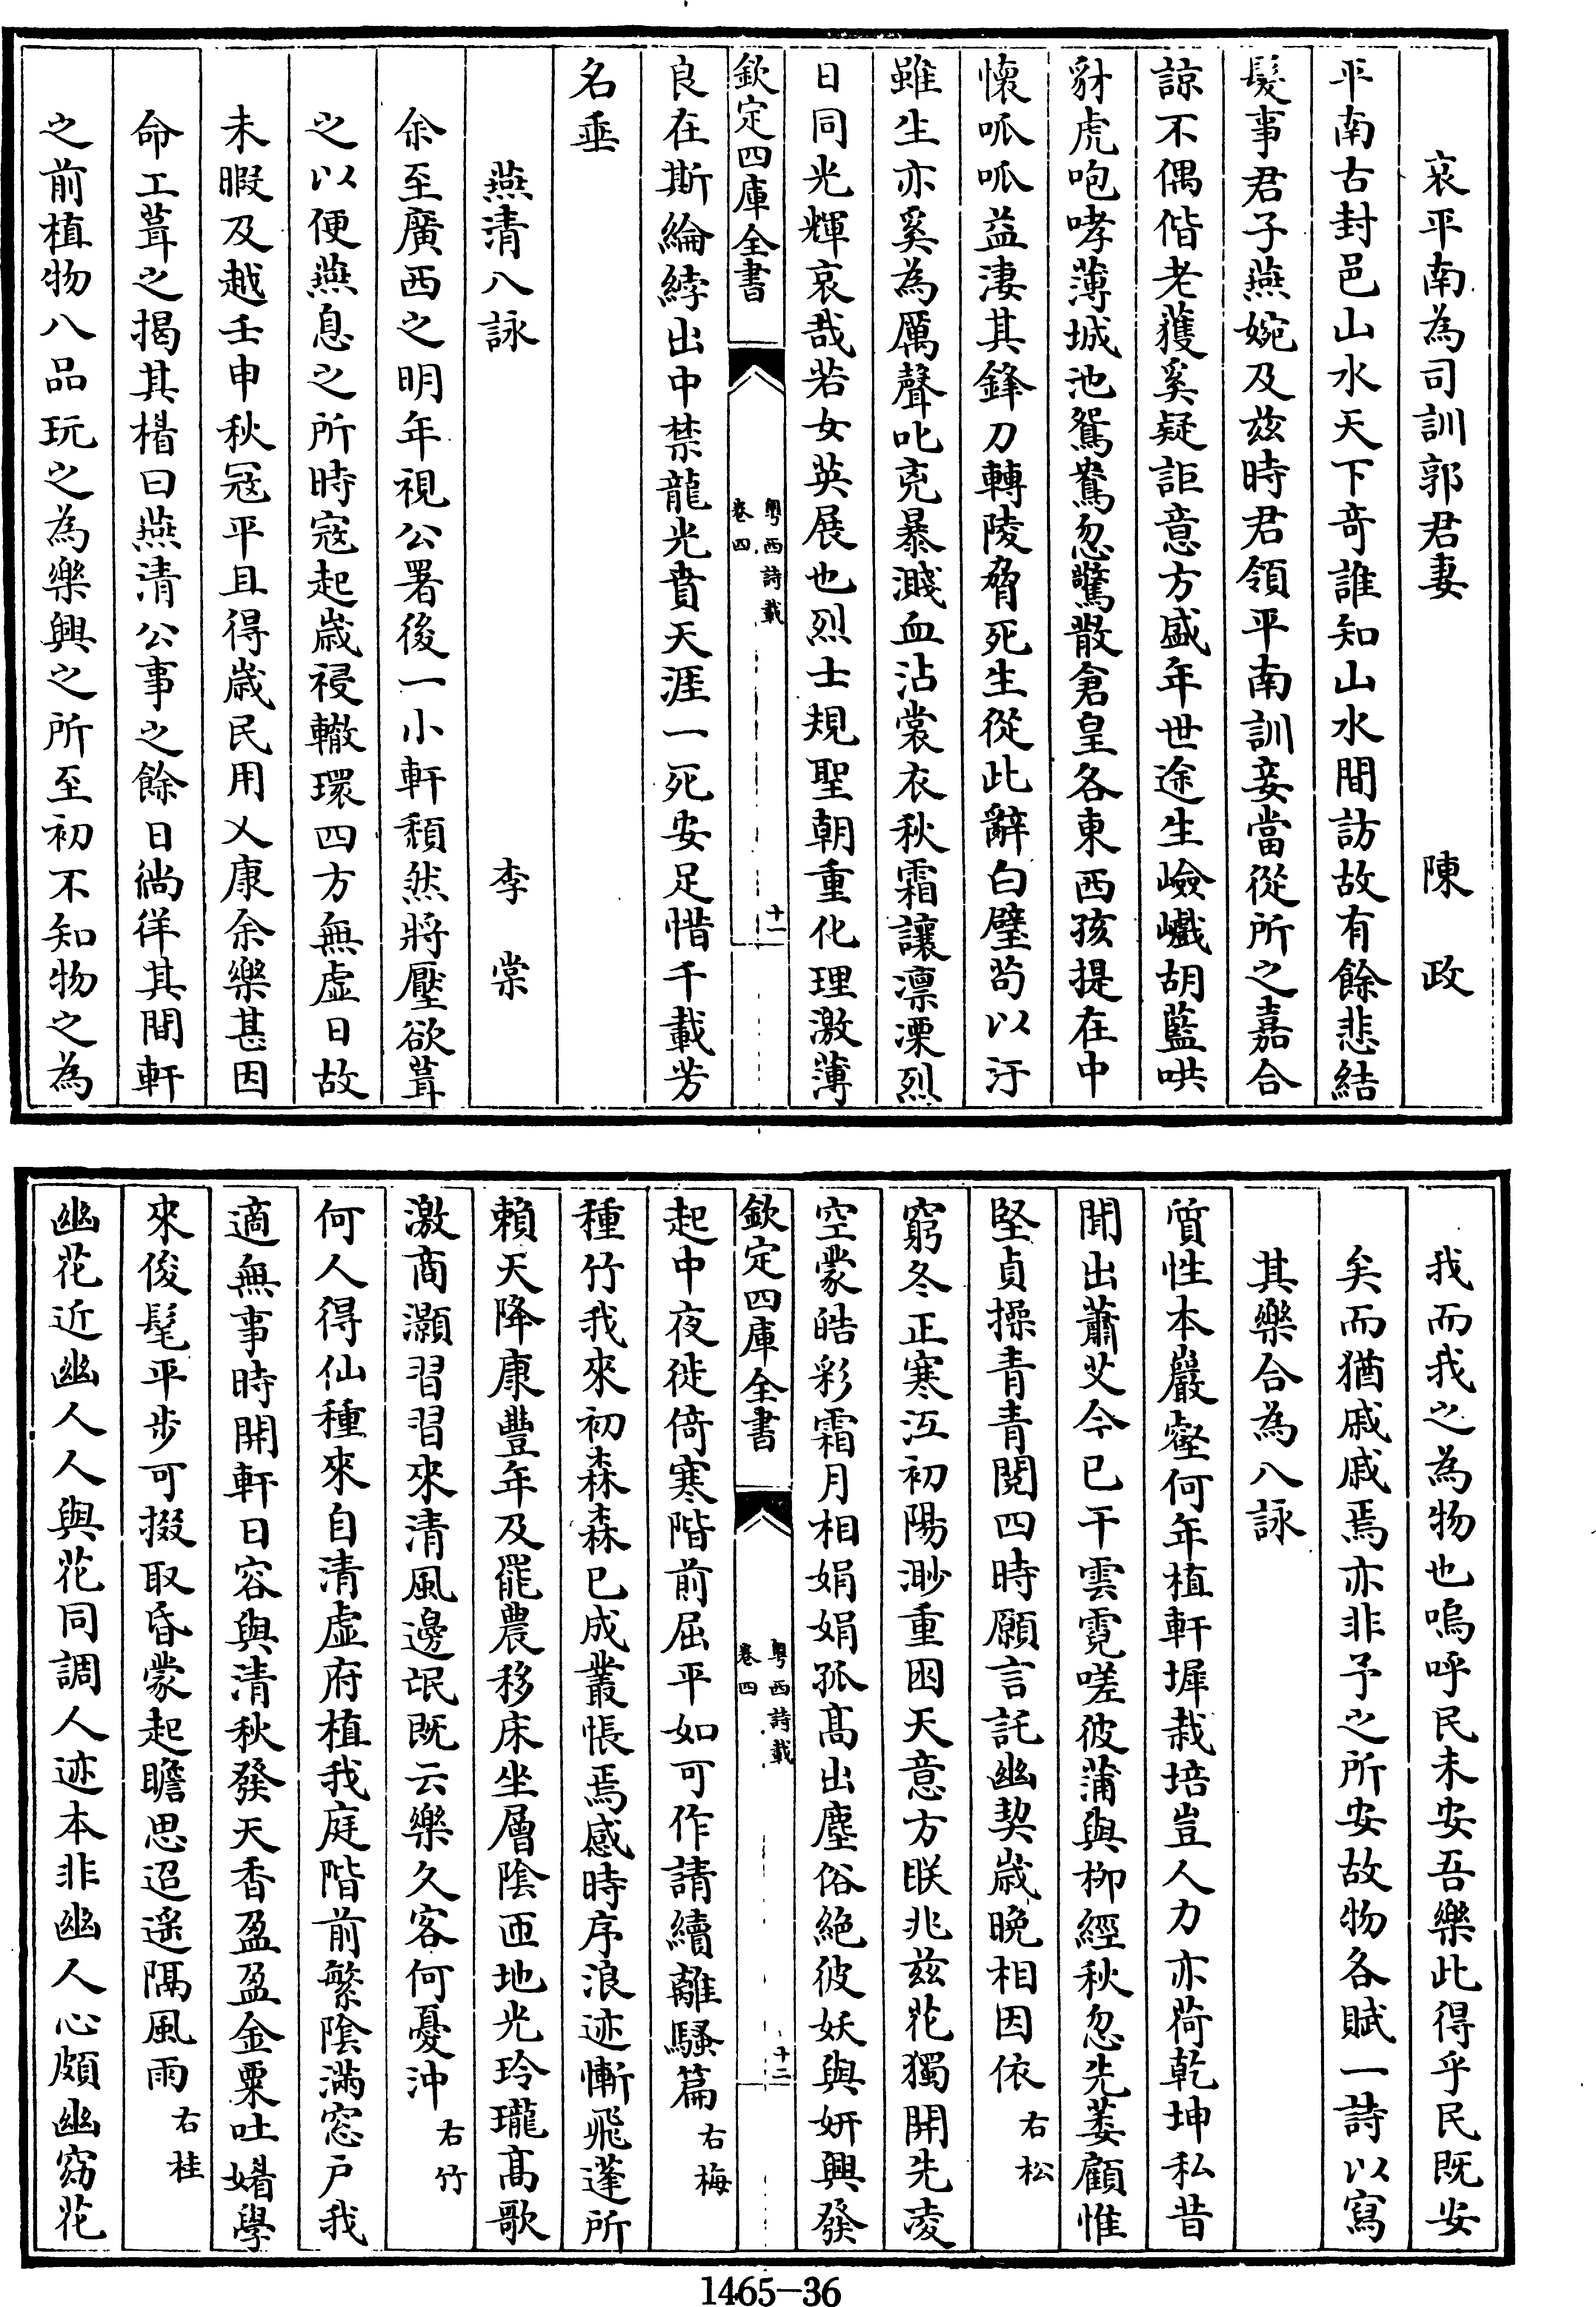 哀平南為司訓郭君妻　陳政
平南古封邑山水天下奇誰知山水間訪故有餘悲結
髮事君子燕婉及茲時君領平南訓妾當從所之嘉合
諒不偶偕老獲奚疑詎意方盛年世途生嶮巇胡藍哄
豺虎咆哮薄城池鴛鴦忽驚散倉皇各東西孩提在中
懷呱呱益淒其鋒刀轉陵脅死生從此辭白璧茍以汙
雖生亦奚為厲聲叱兇暴濺血沾裳衣秋霜讓凛溧烈
日同光輝哀哉若女英展也烈士規聖朝重化理激薄
欽定四庫全書　粵西詩載　卷四　十一
良在斯綸綍出中禁龍光賁天涯一死安足惜千載芳
名垂
燕清八詠　李棠
余至廣西之明年視公署後一小軒頹然將壓欲葺
之以便燕息之所時寇起歲祲轍環四方無虛日故
未暇及越壬申秋冦平且得歲民用乂康余樂甚因
命工葺之揭其楣曰燕清公事之餘日徜徉其間軒
之前植物八品玩之為樂興之所至初不知物之為
我而我之為物也嗚呼民未安吾樂此得乎民既安
矣而猶戚戚焉亦非予之所安故物各賦一詩以寫
其樂合為八詠
質性本巖壑何年植軒墀栽培豈人力亦荷乾坤私昔
聞出蕭艾今已干雲霓嗟彼蒲與柳經秋忽先萎顧惟
堅貞操青青閱四時願言託幽契歲晚相因依右松
窮冬正寒沍初陽渺重困天意方眹兆茲花獨開先凌
空蒙皓彩霜月相娟娟孤高出塵俗絶彼妖與妍興發
欽定四庫全書　粵西詩載　卷四　十二
起中夜徙倚寒階前屈平如可作請續離騷篇右梅
種竹我來初森森已成叢悵焉感時序浪迹慚飛蓬所
賴天降康豐年及罷農移床坐層陰匝地光玲瓏高歌
激商灝習習來清風邊氓既云樂久客何憂沖右竹
何人得仙種來自清虛府植我庭階前繁陰滿窓戶我
適無事時開軒日容與清秋發天香盈盈金粟吐媍學
來俊髦平步可掇取昏蒙起瞻思迢遥隔風雨右桂
幽花近幽人人與花同調人迹本非幽人心頗幽窈花
1465-36